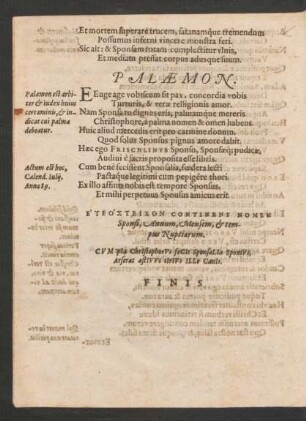 Et mortem superare trucem, satanamque tremendum
Possumus inferni vincere monstra feri.
Sic ait: & Sponsam totam complectitur ulnis,
Et mediam pressat corpus adusque suum.
PALÆMON.
Palæmon est arbiter
& iudex huius
certaminis, & indicat
cui palma
debeatur.
EEuge age vobiscum sit pax, concordia vobis
Turturis, & veræ relligionis amor.
Nam Sponsa tu dignus eris, palmamque mereris
Christophore, à palma nomen & omen habens.
Huic aliud mercedis erit pro carmine donum,
Quod solus Sponsus pignus amore dabit.
Hæc ego FRISCHLINVS Sponsis, Sponsæque pudicæ,
Audivi è sacris proposita esse libris.
Actum est hoc,
Calend. Iulij,
Anno 89.
Cum bene fecissent Sponsalia, fœdera lecti
Pactaque legitimi cum pepigere thori.
Ex illo affinis nobis est tempore Sponsus,
Et mihi perpetuus Sponsus amicus erit.
CONTINENS NOMEN
Sponsi, Annum, Mensem, & tempus
Nuptiarum.
FINIS